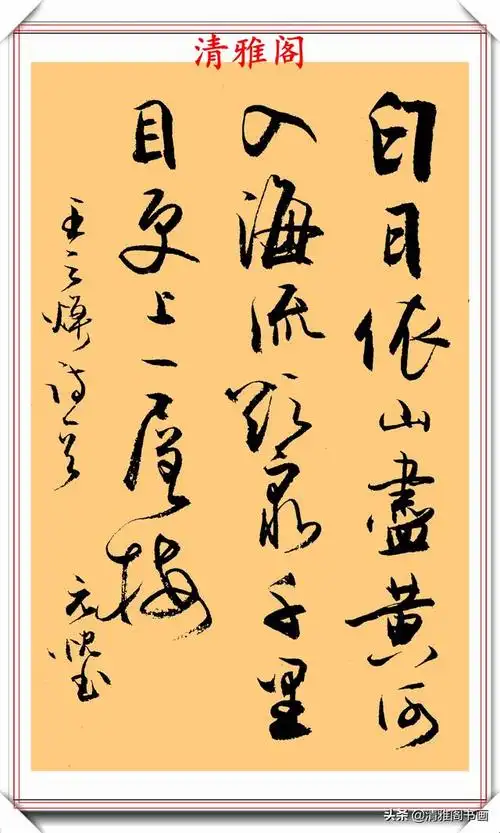 清雅阁
白日依山盡黄河
入海流欲窮千里
目更上一層樓
王之焕诗一首
头条 @清雅阁书画